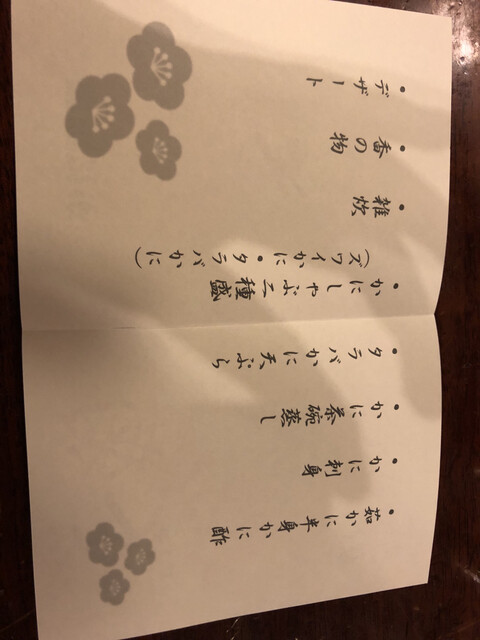 ・茹かに半身かに酢
・かに刺身
・かに茶碗蒸し
・タラバかに天ぷら
・かにしゃぶ二種盛
（ズワイかに・タラバかに）
・雑炊
・香の物
・デザート